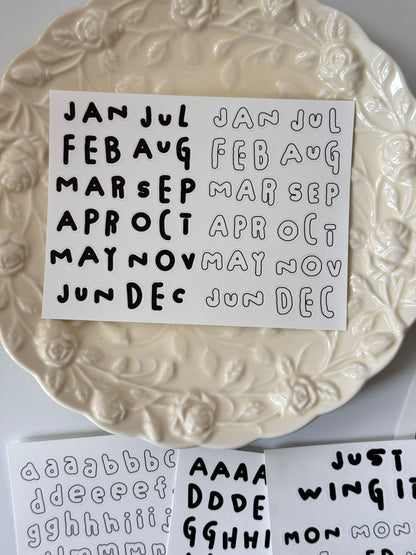 JAN JUL JAN JUL
FEB AUG FEB AUG
MAR SEP MAR SEP
APR OCT APR OCT
MAY NOV MAY NOV
JUN DEC JUN DEC
aaabbbc
ddeeeef
gghhiiij
AAAA
DDDE
GGHHI
JUST
WING IT
MON MON